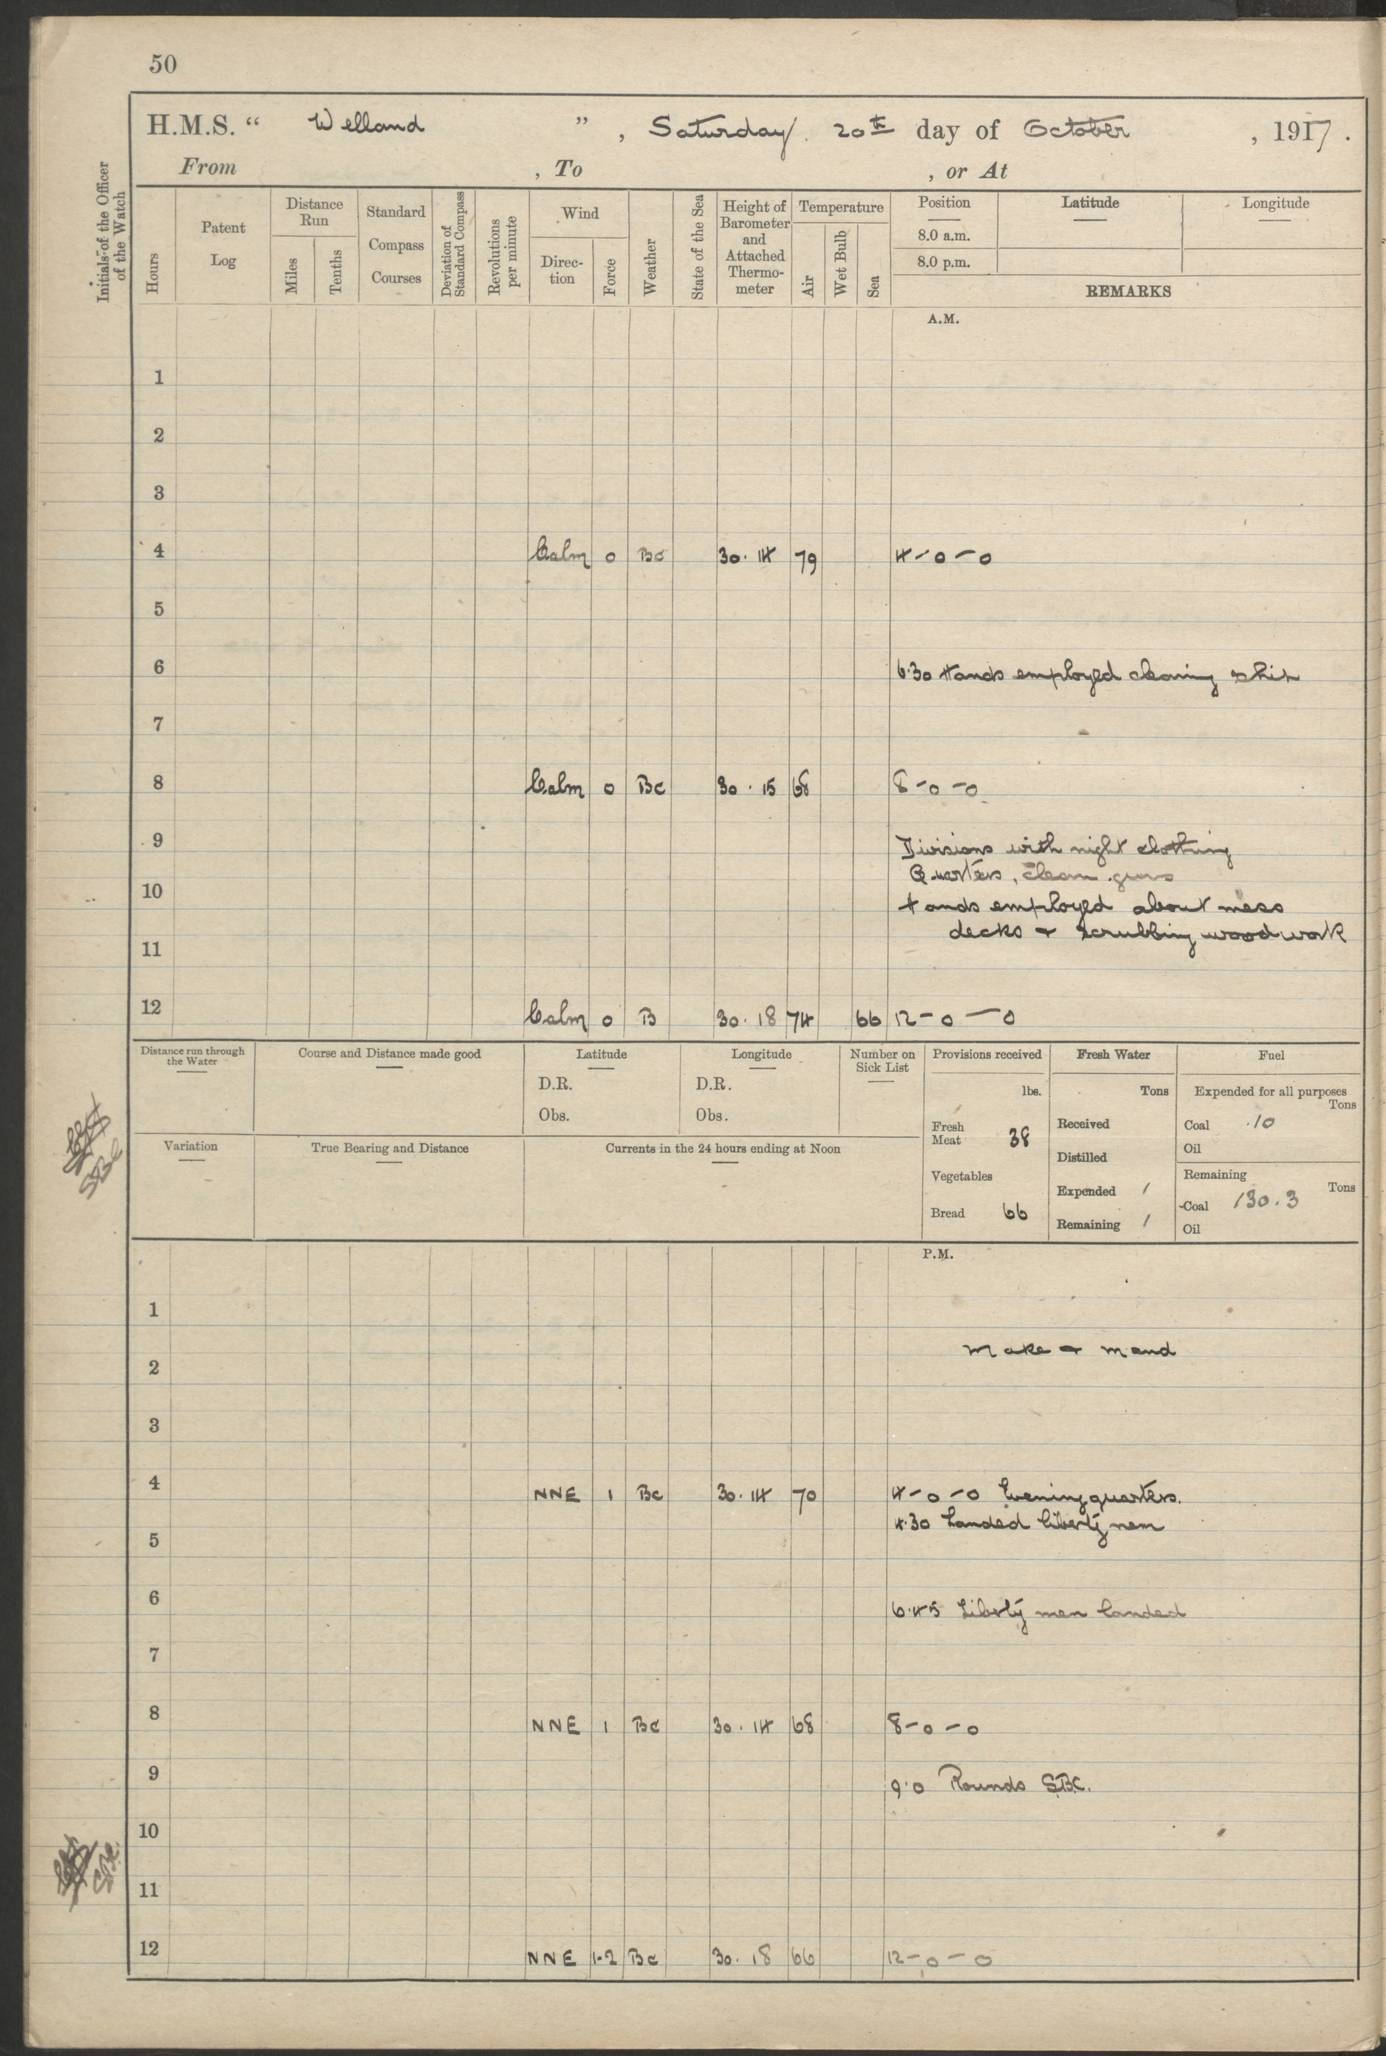 50
H.M.S. “ Welland ”, Saturday. 20th day of October, 1917.
From , To , or At
Initials of the Officer of the Watch
Hours
Patent Log
Distance Run
Miles
Tenths
Standard Compass Courses
Deviation of Standard Compass
Revolutions per minute
Wind
Direction
Force
Weather
State of the Sea
Height of Barometer and Attached Thermometer
Temperature
Air
Wet Bulb
Sea
Position
8.0 a.m.
8.0 p.m.
Latitude
Longitude
REMARKS
A.M.
1
2
3
4 Calm 0 Bc 30.14 79 4-0-0
5
6 6.30 Hands employed cleaning ship
7
8 Calm 0 Bc 30.15 68 8-0-0
9 Divisions with night clothing
Quarters, clean guns
10 Hands employed about mess
decks & scrubbing woodwork
11
12 Calm 0 B 30.18 74 66 12-0-0
Distance run through the Water
Course and Distance made good
Latitude
D.R.
Obs.
Longitude
D.R.
Obs.
Number on Sick List
Provisions received
lbs.
Fresh Meat 38
Vegetables
Bread 66
Fresh Water
Tons
Received
Distilled
Expended 1
Remaining 1
Fuel
Expended for all purposes
Tons
Coal .10
Oil
Remaining
Tons
Coal 130.3
Oil
Variation
True Bearing and Distance
Currents in the 24 hours ending at Noon
SBC
P.M.
1
Make & mend
2
3
4 NNE 1 Bc 30.14 70 4-0-0 Evening quarters.
4.30 Landed liberty men
5
6 6.45 Liberty men landed
7
8 NNE 1 Bc 30.14 68 8-0-0
9 9.0 Rounds SBC.
10
SBC.
11
12 NNE 1-2 Bc 30.18 66 12-0-0